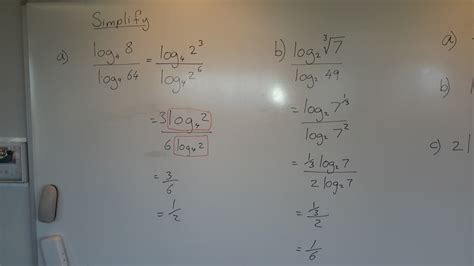 Simplify
a) log₄ 8 / log₄ 64 = log₄ 2³ / log₄ 2⁶
= 3 log₄ 2 / 6 log₄ 2
= 3/6
= 1/2
b) log₂ ³√7 / log₂ 49
= log₂ 7^⅓ / log₂ 7²
= ⅓ log₂ 7 / 2 log₂ 7
= ⅓ / 2
= 1/6
a)
b)
c) 2